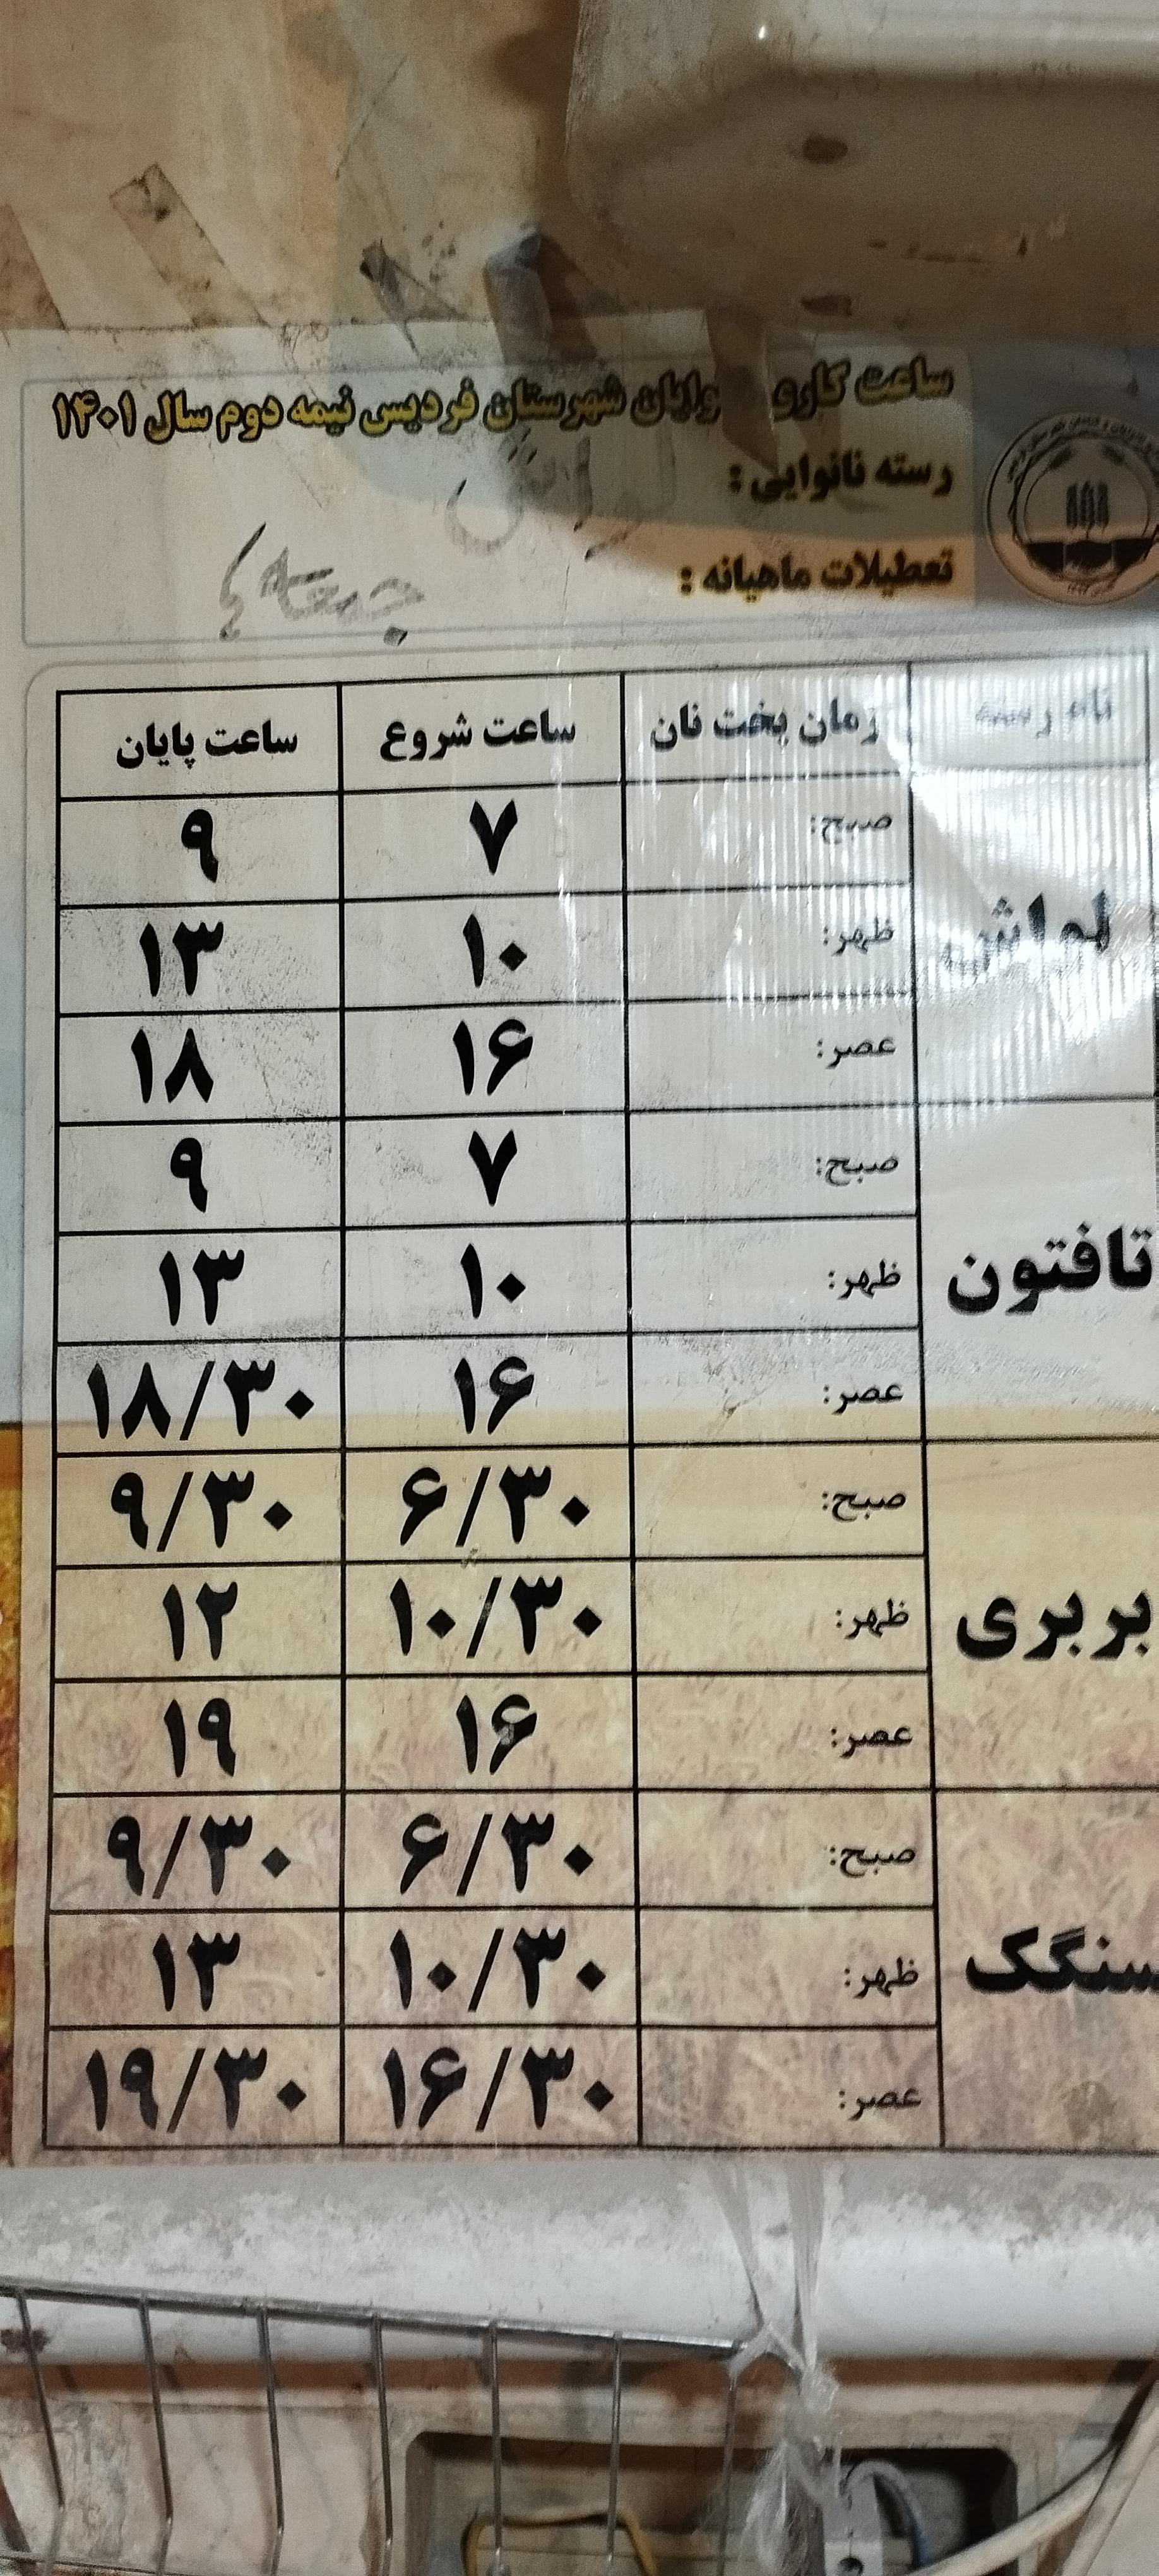 ساعت کارو وایان شهرستان فردیس نیمه دوم سال ۱۴۰۱
رسته نانوایی : لواش
تعطیلات ماهیانه : جمعه ها
نام رسته زمان پخت نان ساعت شروع ساعت پایان
لواش
صبح: ۷ ۹
ظهر: ۱۰ ۱۳
عصر: ۱۶ ۱۸
تافتون
صبح: ۷ ۹
ظهر: ۱۰ ۱۳
عصر: ۱۶ ۱۸/۳۰
بربری
صبح: ۶/۳۰ ۹/۳۰
ظهر: ۱۰/۳۰ ۱۲
عصر: ۱۶ ۱۹
سنگک
صبح: ۶/۳۰ ۹/۳۰
ظهر: ۱۰/۳۰ ۱۳
عصر: ۱۶/۳۰ ۱۹/۳۰